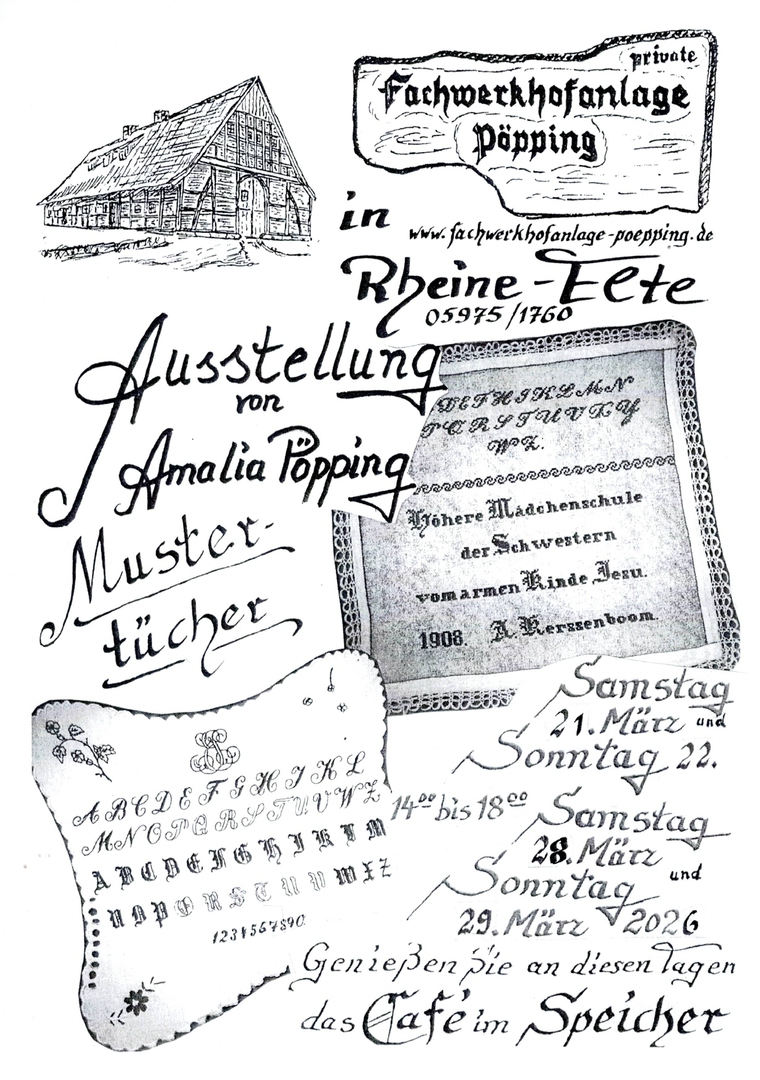 private
Fachwerkhofanlage
Pöpping
in
www.fachwerkhofanlage-poepping.de
Rheine-Elte
05975/1760
Ausstellung
von
Amalia Pöpping
Muster-
tücher
DEFHIKLMN
PQRSTUVXY
WZ.
Höhere Mädchenschule
der Schwestern
vom armen Kinde Jesu.
1908. A. Kerssenboom.
A B C D E F G H I J K L
M N O P Q R S T U V W Z
A B C D E F G H I K L M
N O P Q R S T U V W X Z
1234567890
Samstag
21. März und
Sonntag 22.
14⁰⁰ bis 18⁰⁰
Samstag
28. März
und
Sonntag
29. März 2026
Genießen Sie an diesen Tagen
das Café im Speicher